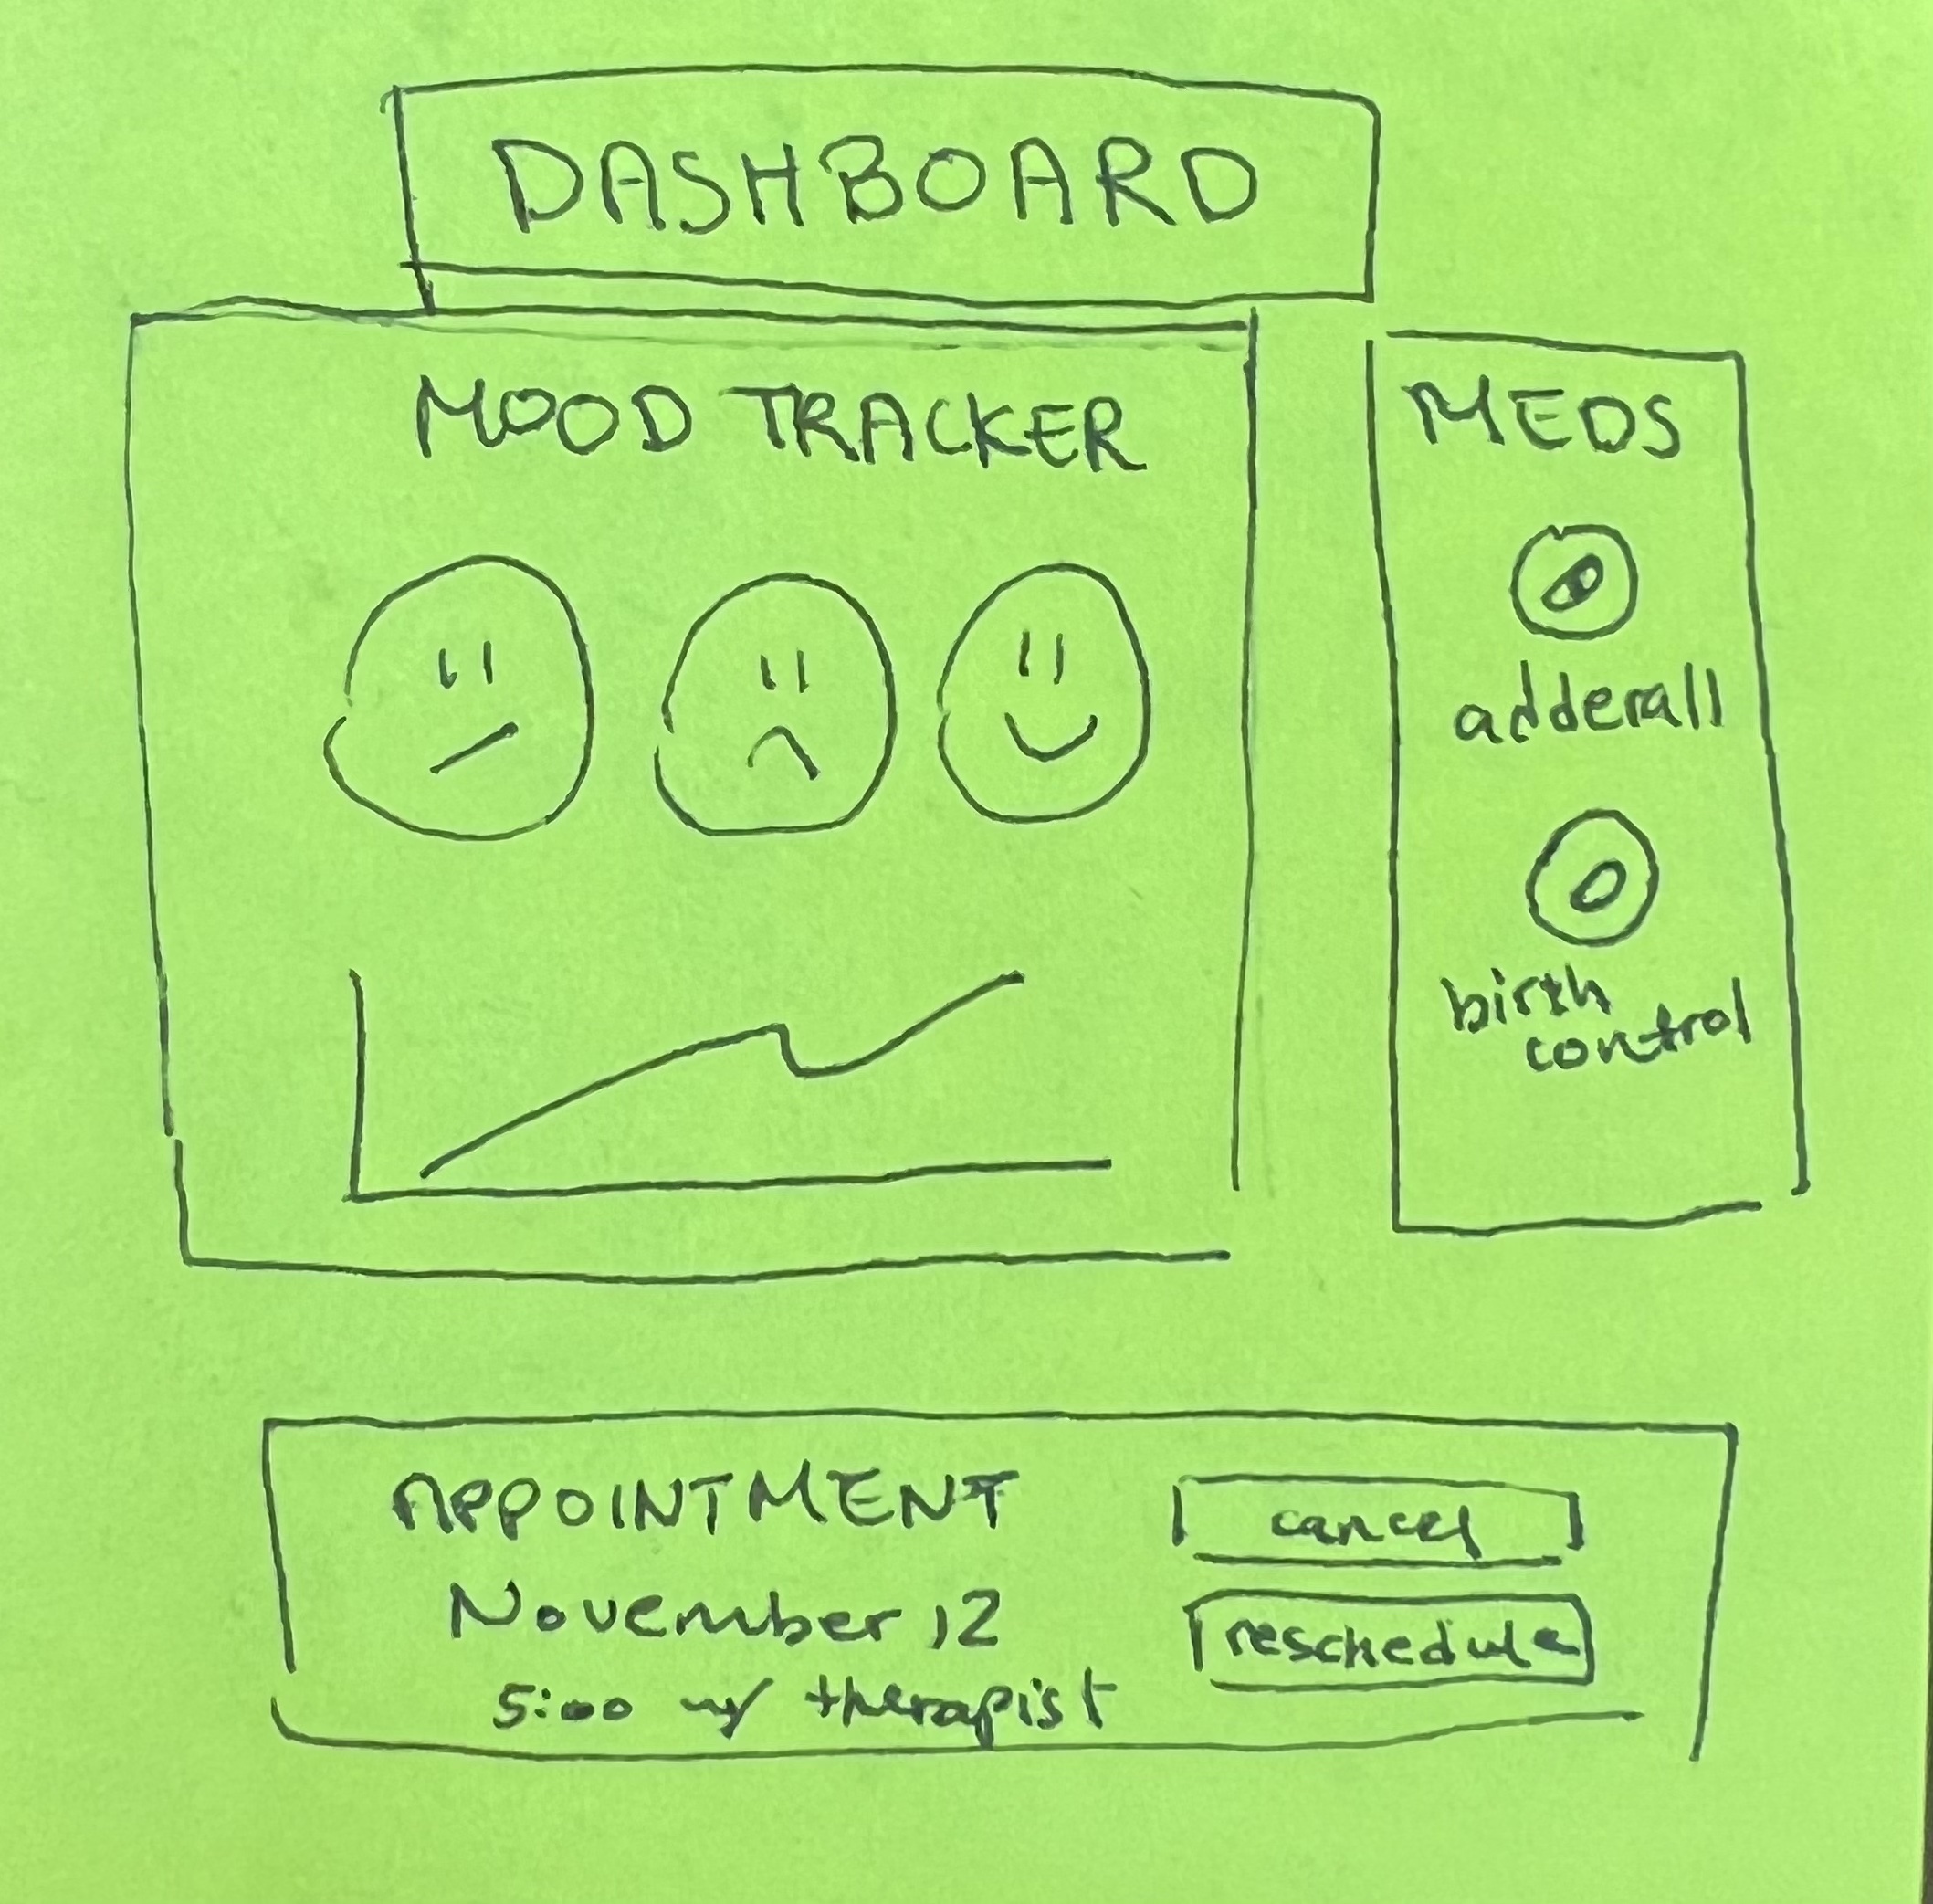 DASHBOARD
MOOD TRACKER
MEDS
adderall
birth
control
APPOINTMENT
November 12
5:00 w/ therapist
cancel
reschedule